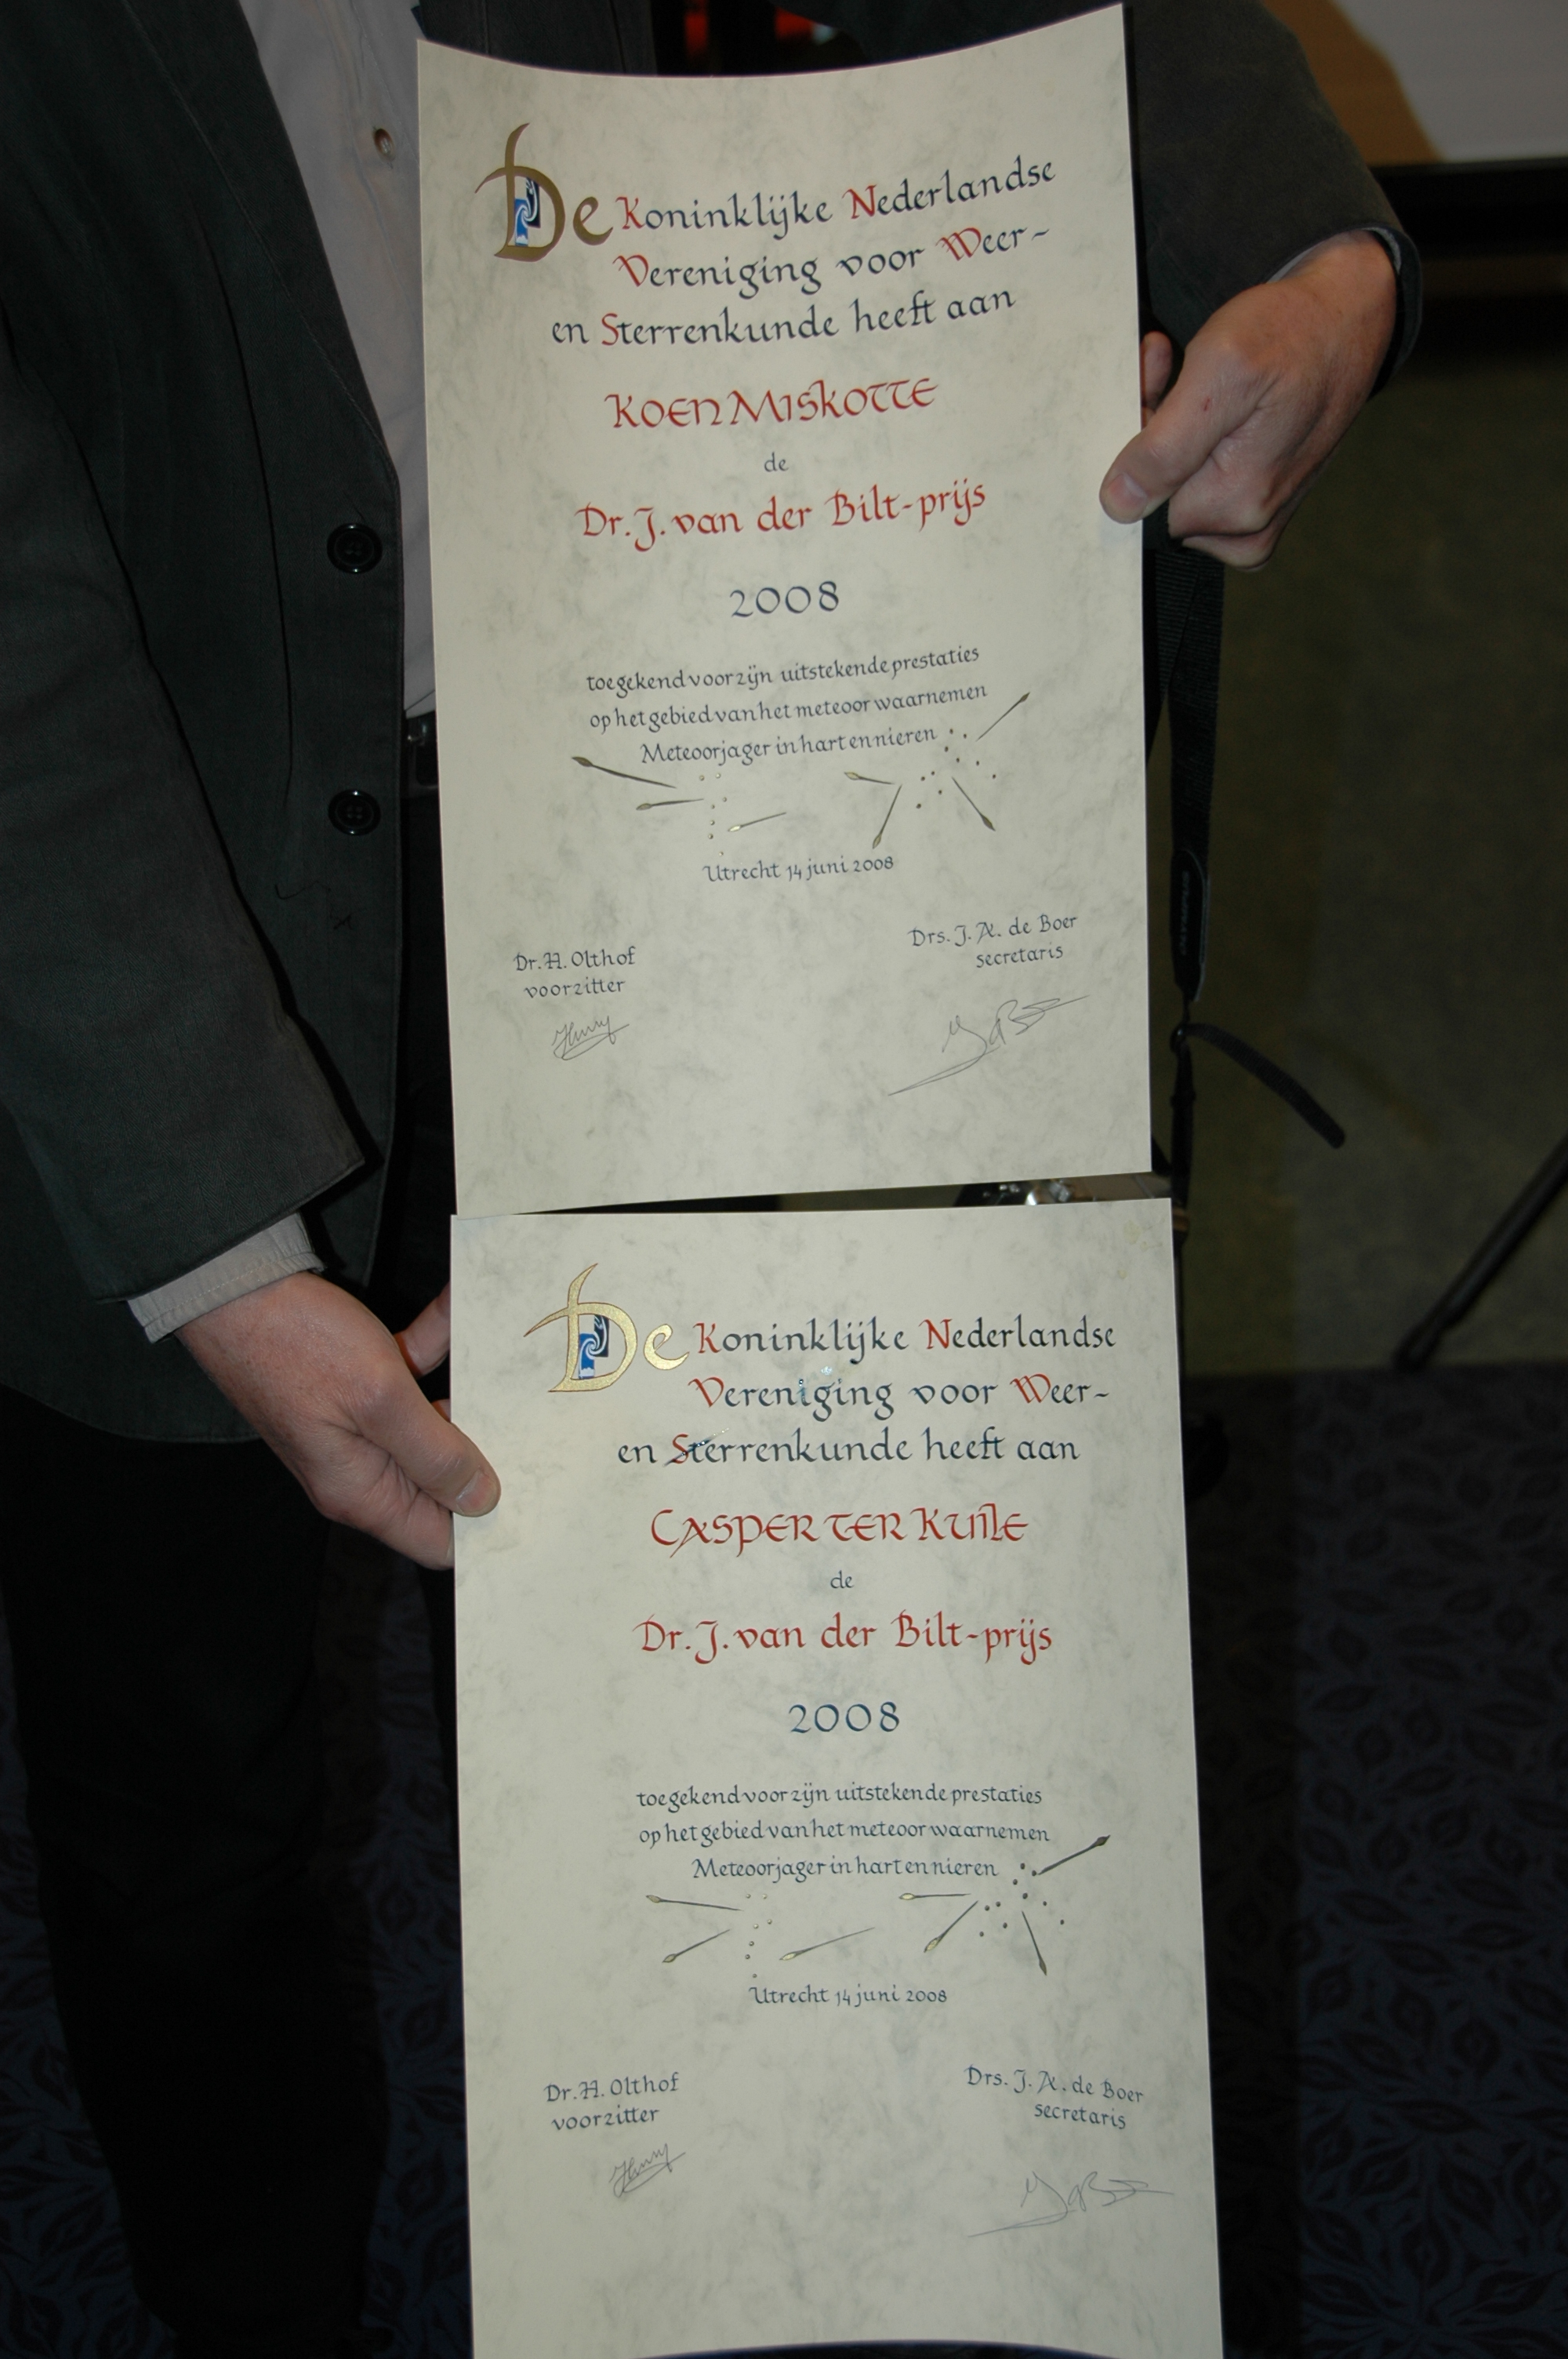 De Koninklijke Nederlandse
Vereniging voor Weer-
en Sterrenkunde heeft aan
KOEN MISKOTTE
de
Dr. J. van der Bilt-prijs
2008
toegekend voor zijn uitstekende prestaties
op het gebied van het meteoor waarnemen
Meteoorjager in hart en nieren
Utrecht 14 juni 2008
Dr. H. Olthof
voorzitter
Drs. J. A. de Boer
secretaris
De Koninklijke Nederlandse
Vereniging voor Weer-
en Sterrenkunde heeft aan
CASPER TER KUILE
de
Dr. J. van der Bilt-prijs
2008
toegekend voor zijn uitstekende prestaties
op het gebied van het meteoor waarnemen
Meteoorjager in hart en nieren
Utrecht 14 juni 2008
Dr. H. Olthof
voorzitter
Drs. J. A. de Boer
secretaris